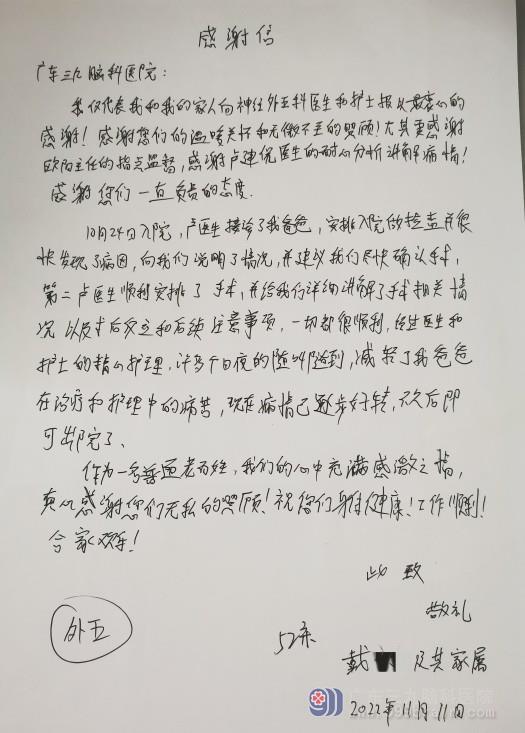 感谢信
广东三九脑科医院：
我仅代表我和我的家人向神经外五科医生和护士报以最衷心的
感谢！感谢您们的温暖关怀和无微不至的照顾！尤其重感谢
欧阳主任的指点监督，感谢卢建侃医生的耐心分析讲解病情！
感谢您们一直负责的态度．
10月24日入院，卢医生接诊了我爸爸，安排入院做检查并很
快发现了病因，向我们说明了情况，并建议我们尽快确认手术，
第二卢医生顺利安排了手术，并给我们详细讲解了手术相关情
况以及术后反应和后续注意事项，一切都很顺利，经过医生和
护士的精心护理，许多个日夜的随叫随到，减轻了我爸爸
在治疗和护理中的病苦，现在病情已逐步好转，不久后即
可出院了、
作为一名普通老百姓，我们的心中充满感激之情，
真心感谢您们无私的照顾！祝您们身体健康！工作顺利！
合家欢乐！
此致
敬礼
外五
52床
戴 及其家属
2022年11月11日
广东三九脑科医院